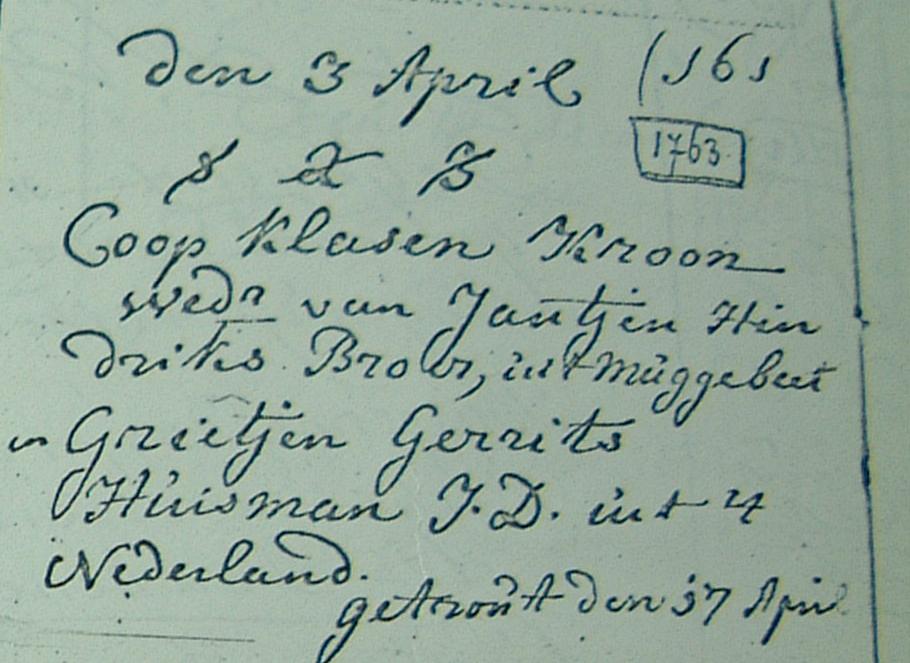 den 3 April (161
1763.
Coop Klasen Kroon
wedr van Jantjen Hin
driks Brouwr, int Muggebeet
en Grietjen Gerrits
Huisman J.D. int
Nederland.
getrouwt den 17 April